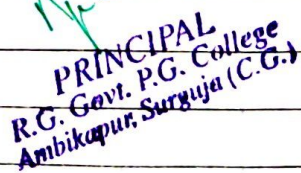 PRINCIPAL
R.G. Govt. P.G. College
Ambikapur, Surguja (C.G.)